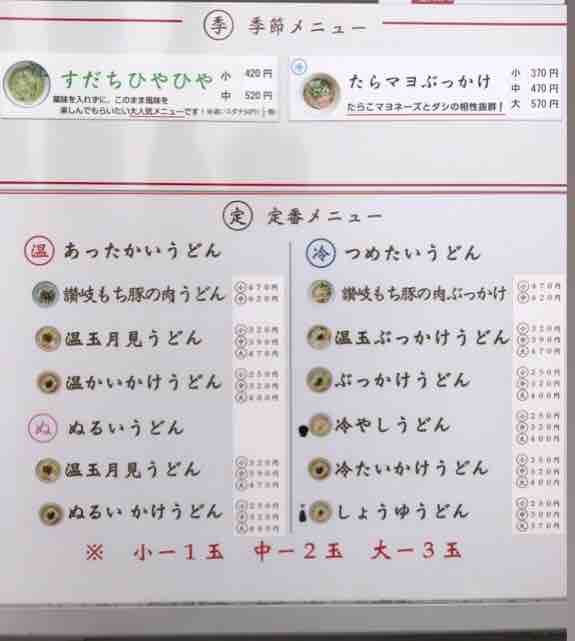 季 季節メニュー
すだちひやひや 小 420円
中 520円
薬味を入れずに、このまま風味を
楽しんでもらいたい大人気メニューです!
冷 たらマヨぶっかけ 小 370円
中 470円
大 570円
たらこマヨネーズとダシの相性抜群!
定 定番メニュー
温 あったかいうどん
讃岐もち豚の肉うどん 小470円
中620円
温玉月見うどん 小320円
中390円
大470円
温かいかけうどん 小250円
中320円
大400円
ぬ ぬるいうどん
温玉月見うどん 小320円
中390円
大470円
ぬるいかけうどん 小250円
中320円
大400円
冷 つめたいうどん
讃岐もち豚の肉ぶっかけ 小470円
中620円
温玉ぶっかけうどん 小320円
中390円
大470円
ぶっかけうどん 小250円
中320円
大400円
冷やしうどん 小250円
中320円
大400円
冷たいかけうどん 小250円
中320円
大400円
しょうゆうどん 小230円
中300円
大370円
※ 小ー1玉 中ー2玉 大ー3玉